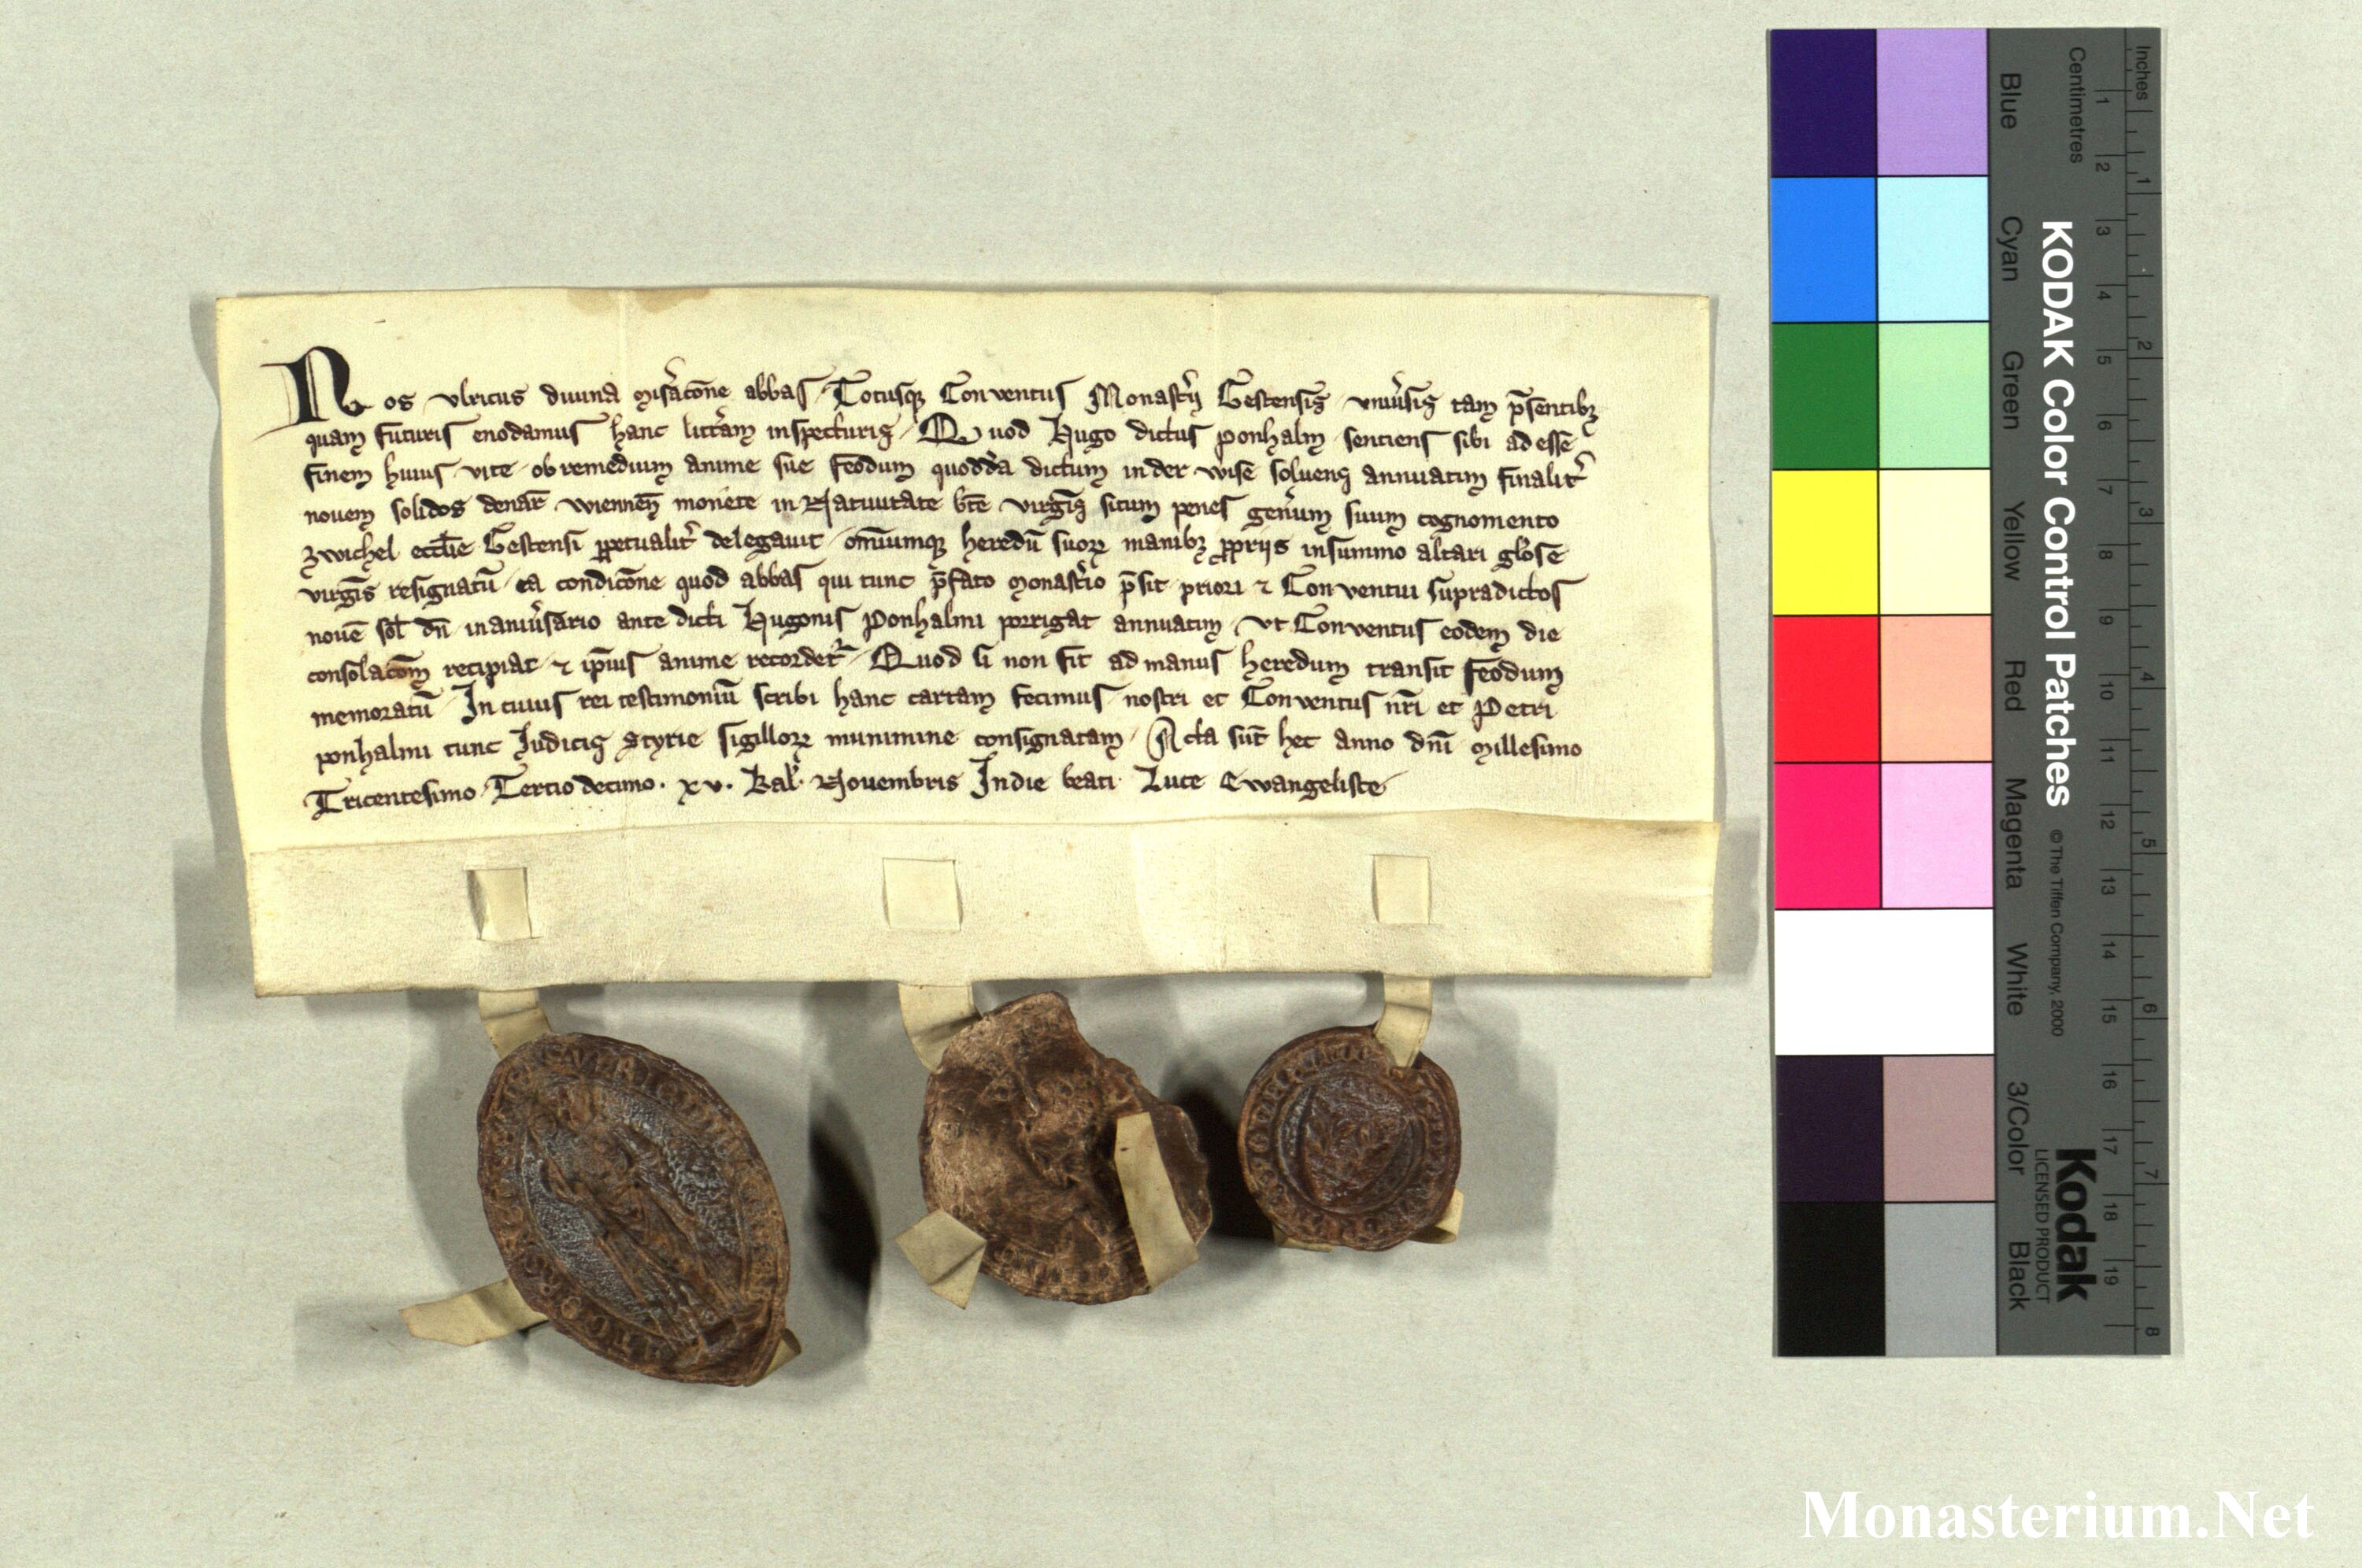 Nos vlricus diuina mis̄ac̄one abbas Totusq; Conventus Monast̄ij Gestensis vniu̓sis tam p̄sentibꝫ
quam futuris enodamus hanc litt̓am inspecturis Quod Hugo dictus ponhalm sentiens sibi ad esse
finem huius vite ob remedium anime sue feodum quodda dictum in der wise soluens annuatim finalit̓
nouem solidos denar̄ wiennen̄ monete in Natiuitate bt̄e virgīs situm penes gen̓um suum cognomento
zwichel eccl̄ie Gestensi ꝑpetualit̓ delegauit om̄iumqꝫ heredū suoꝝ manibꝫ ꝓprijs in summo altari gl̓ose
virgīs resignatū ea condicōne quod abbas qui tunc p̄fato monast̓io p̄sit priori ⁊ Conventui supradictos
nouē sol̄ dn̄ in aniu̓sario ante dicti Hugonis ponhalmi porrigat annuatim vt Conventus eodem die
consolacōm recipiat ⁊ ip̄ius anime recordet̓ Quod si non fit ad manus heredum transit feodum
memoratū In cuius rei testimoniū scribi hanc cartam fecimus nostri et Conventus nr̄i et Petri
ponhalmi tunc Iudicis Styrie sigilloꝝ munimine consignatam Acta sūt hec anno dn̄i Millesimo
Tricentesimo Tercio decimo . xv . Kal̓ Nouembris In die beati Luce Ewangeliste
Inches
Centimetres
1 2 3 4 5 6 7 8
1 2 3 4 5 6 7 8 9 10 11 12 13 14 15 16 17 18 19
KODAK Color Control Patches
© The Tiffen Company, 2000
Kodak
LICENSED PRODUCT
Blue Cyan Green Yellow Red Magenta White 3/Color Black
Monasterium.Net